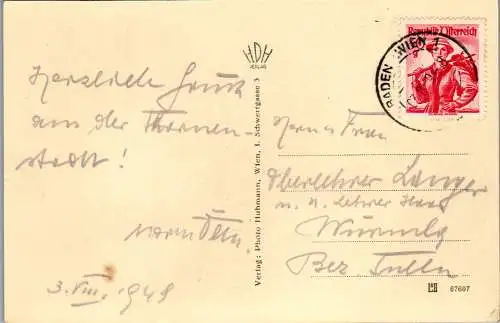 Herzliche Grüße
aus der Thermen-
stadt!
3. VIII. 1949
HDH
VERLAG
Verlag: Photo Hubmann, Wien, I. Schwertgasse 3
Republik Österreich
BADEN WIEN 1
Herrn u Frau
Oberlehrer Langer
Würmla
Bez Tulln
67607